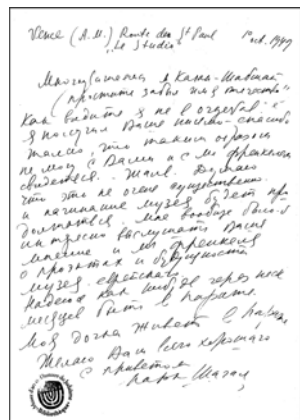 Vence (A.M.) Route de St Paul 1 oct. 1949
"Le Studio"
Многоуважаемый
(простите забыл имя отчество)
Как видите я не в
Я получил Ваше письмо - спасибо
Жалею, что таким образом
не мог с Вами и с
свидеться. Жаль. Думаю
что это не очень существенно
и начинание музея будет про
должаться. Мне вообще было б
интересно выслушать Ваше
мнение и
о проэктах и будущности
музея еврейского
Надеюсь как нибудь через
месяцев быть в Париже.
Моя дочка живет в Париже
Желаю Вам всего хорошего
с приветом
Марк Шагал